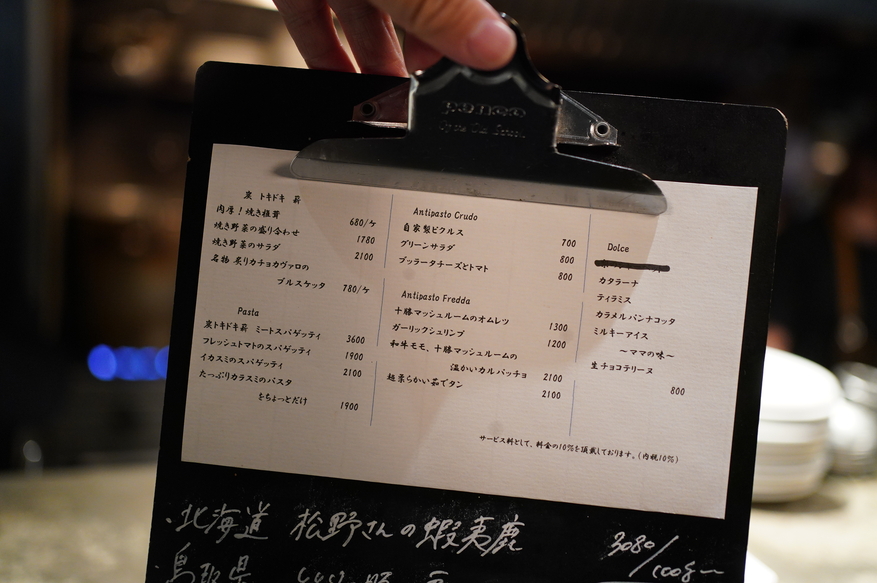 penco
炭 トキドキ 薪
肉厚！焼き椎茸 680/ケ
焼き野菜の盛り合わせ 1780
焼き野菜のサラダ 2100
名物 炙りカチョカヴァロの
ブルスケッタ 780/ケ
Pasta
炭トキドキ薪 ミートスパゲッティ 3600
フレッシュトマトのスパゲッティ 1900
イカスミのスパゲッティ 2100
たっぷりカラスミのパスタ
をちょっとだけ 1900
Antipasto Crudo
自家製ピクルス 700
グリーンサラダ 800
ブッラータチーズとトマト 800
Antipasto Fredda
十勝マッシュルームのオムレツ 1300
ガーリックシュリンプ 1200
和牛モモ、十勝マッシュルームの
温かいカルパッチョ 2100
超柔らかい茹でタン 2100
Dolce
カタラーナ
ティラミス
カラメルパンナコッタ
ミルキーアイス
〜ママの味〜
生チョコテリーヌ
800
サービス料として、料金の10%を頂戴しております。(内税10%)
・北海道 松野さんの蝦夷鹿 3080/100g〜
・鳥取県